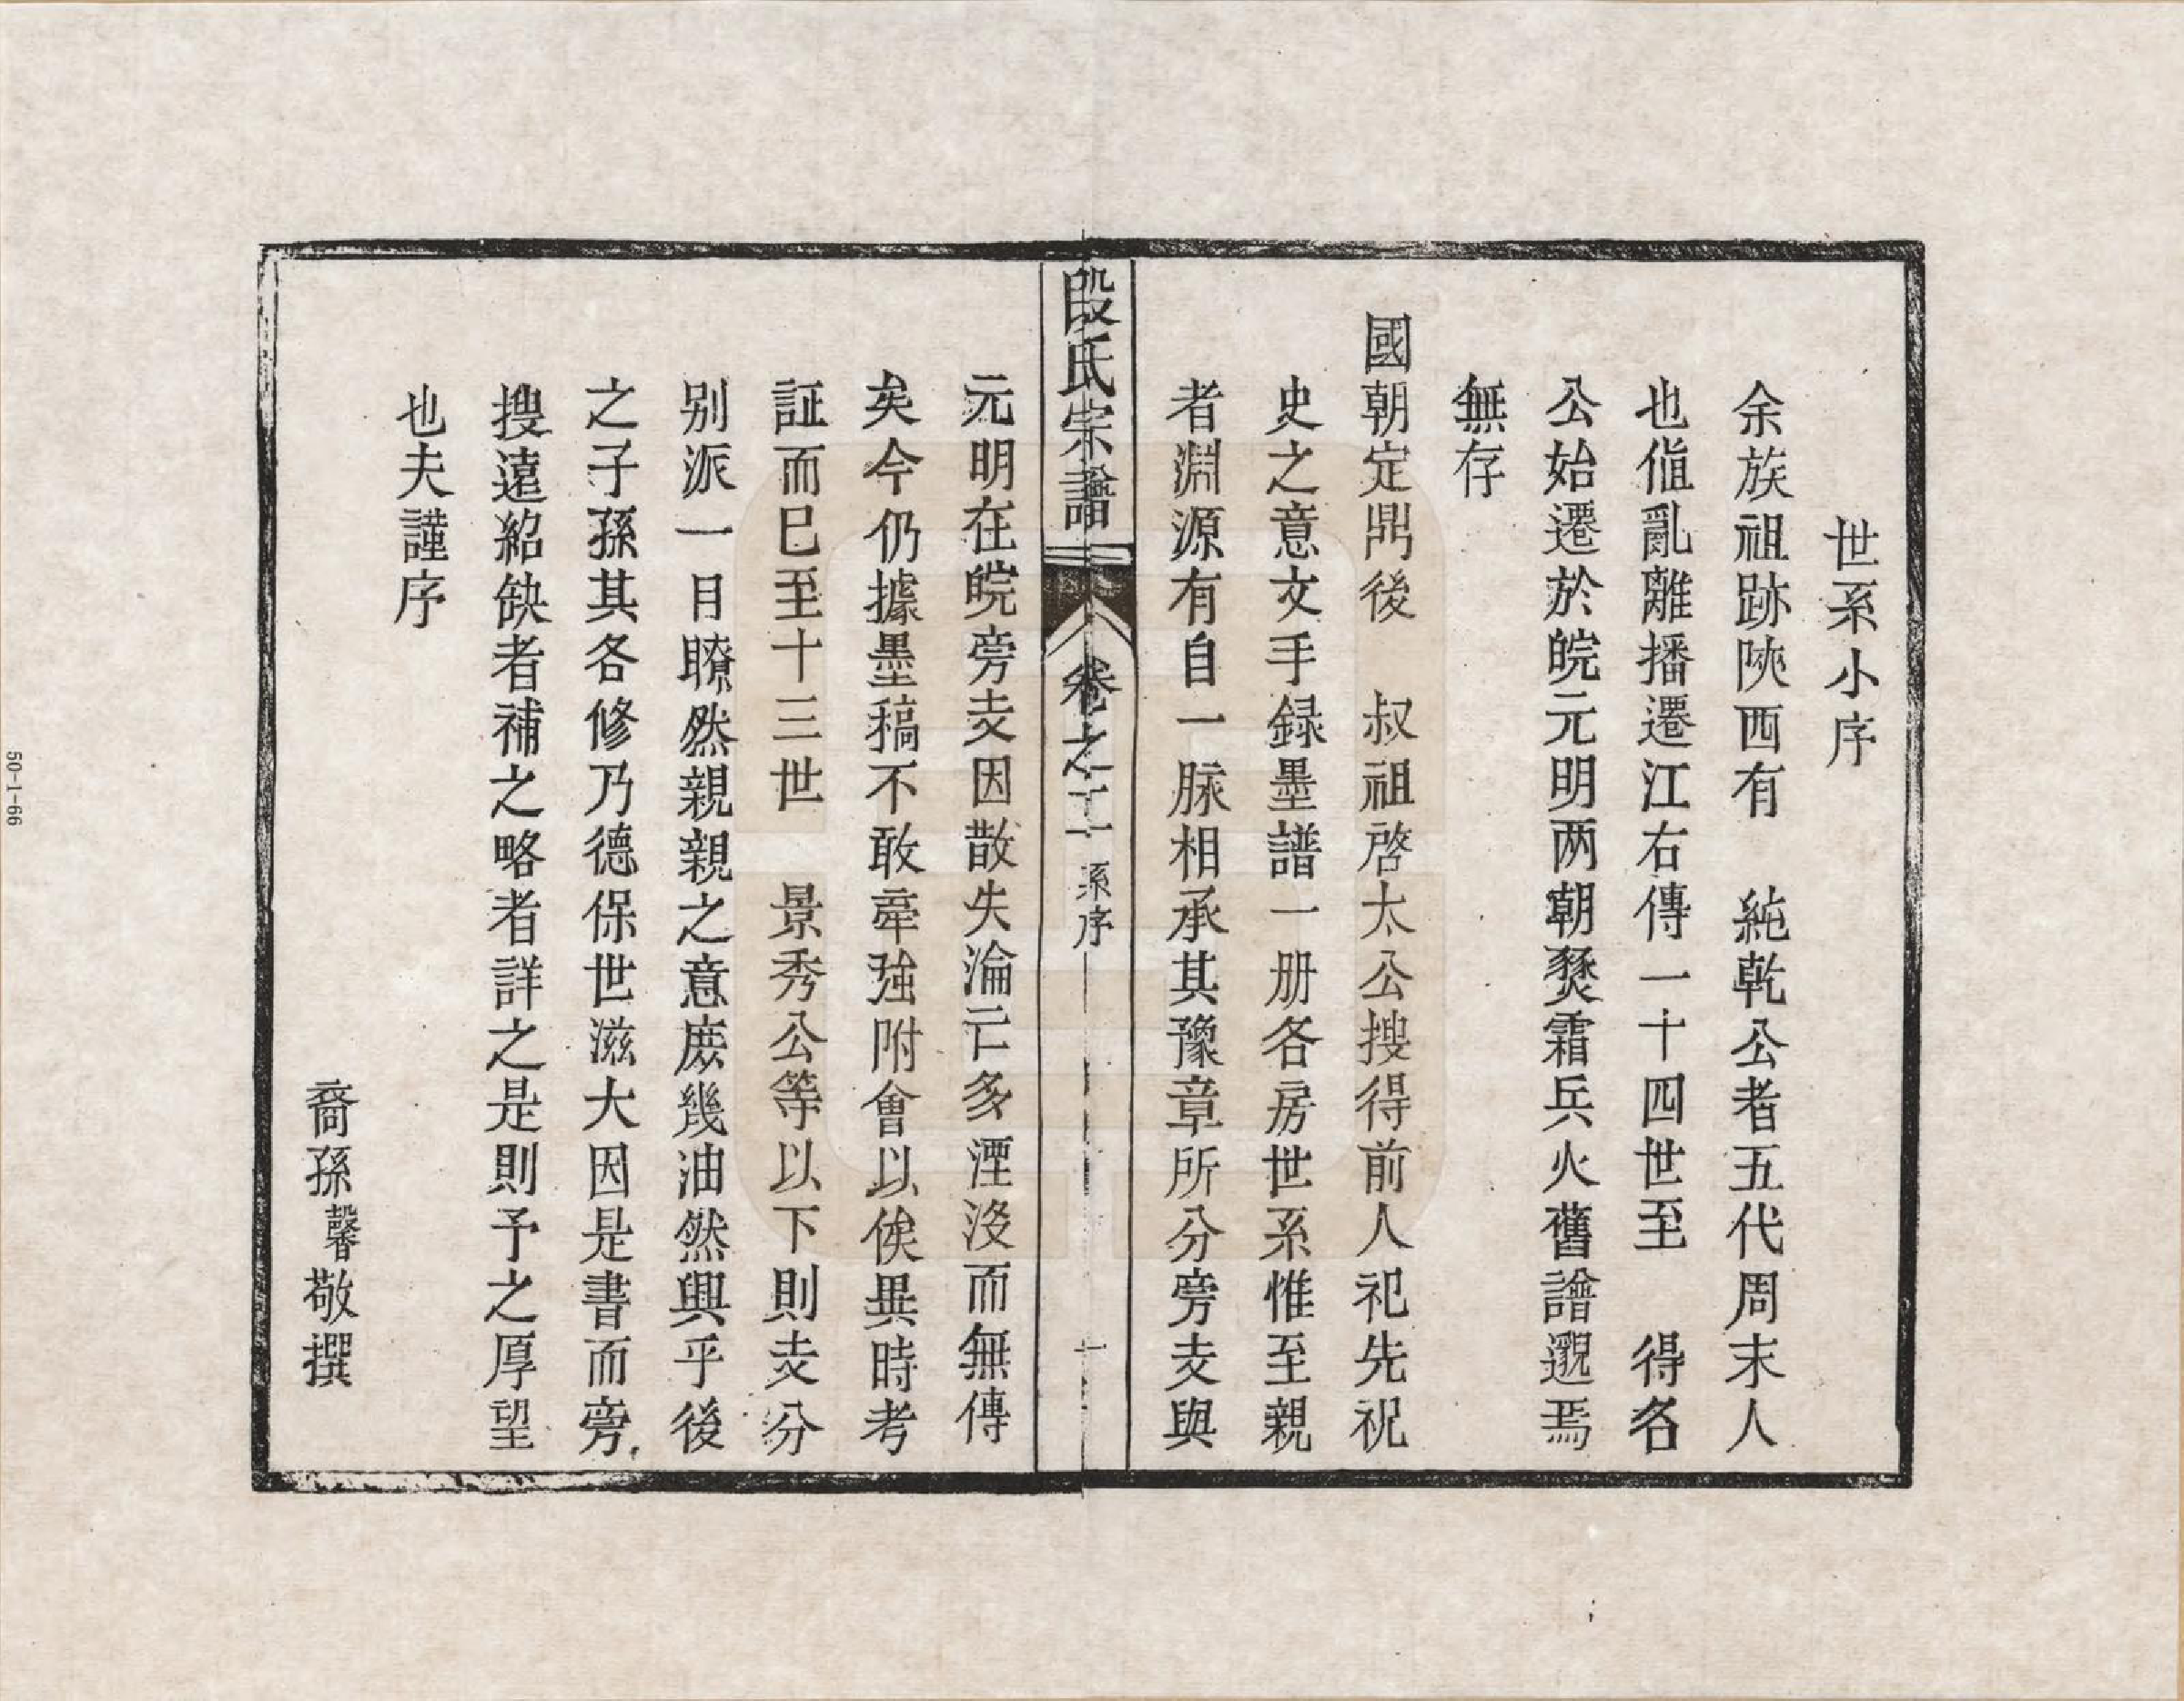 世系小序
余族祖跡陝西有　純乾公者五代周末人
也值亂離播遷江右傳一十四世至　得名
公始遷於皖元明两朝燹霜兵火舊譜邈焉
無存
國朝定鼎後　叔祖啓太公搜得前人祀先祝
史之意文手録墨譜一册各房世系惟至親
者淵源有自一脉相承其豫章所分旁支與
段氏宗譜　卷之二　系序　一
元明在皖旁支因散失淪亡多湮沒而無傳
矣今仍據墨稿不敢牽强附會以俟異時考
証而已至十三世　景秀公等以下則支分
别派一目瞭然親親之意庶幾油然興乎後
之子孫其各修乃德保世滋大因是書而旁
搜遠紹缺者補之略者詳之是則予之厚望
也夫謹序
裔孫馨敬撰
50-1-66